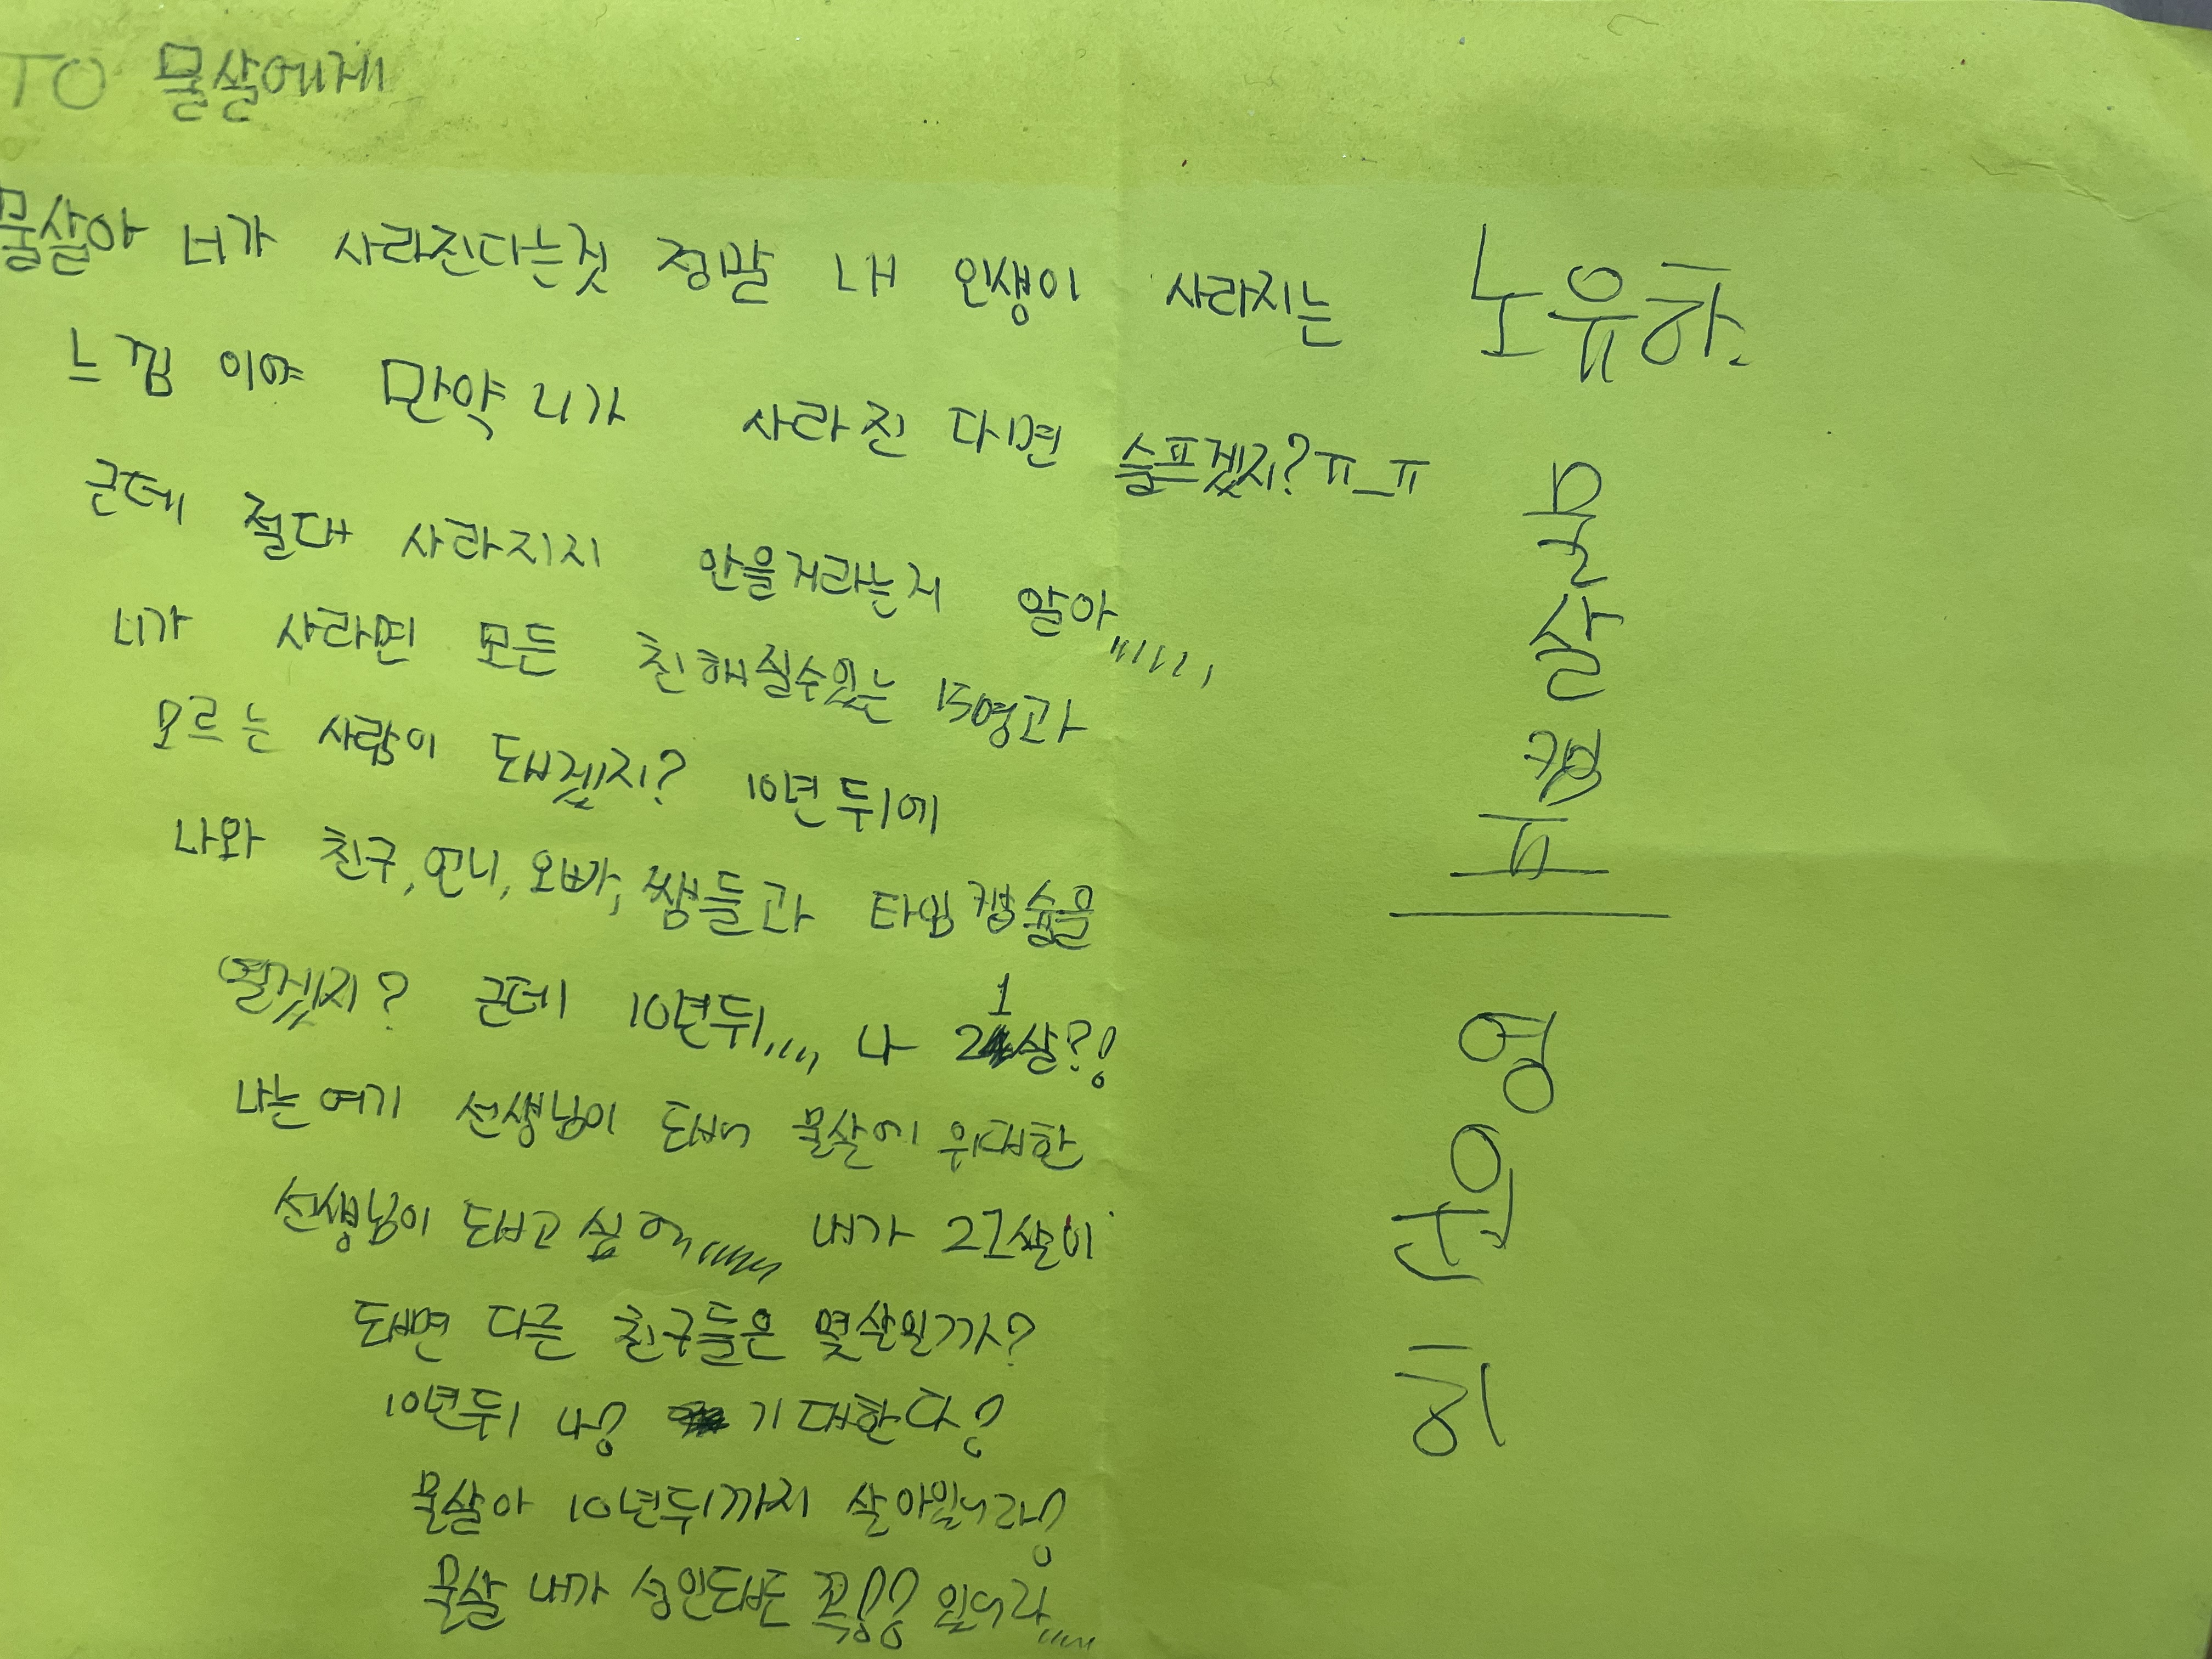 TO 물살에게
물살아 너가 사라진다는것 정말 내 인생이 사라지는
느낌 이야 만약 니가 사라진 다면 슬프겠지?ㅠ_ㅠ
근데 절대 사라지지 안을거라는거 알아,,,,,,
니가 사라면 모든 친해질수있는 15명과
모르는 사람이 돼겠지? 10년 뒤에
나와 친구, 언니, 오빠, 쌤들과 타임캡슐을
열겠지? 근데 10년뒤,,,, 나 21살?!
나는 여기 선생님이 돼어 물살에 위대한
선생님이 돼고 싶어,,,,,, 내가 21살이
돼면 다른 친구들은 몇살일까?
10년뒤 나! 기대한다!
물살아 10년뒤까지 살아있어라!
물살 내가 성인돼도 꼭!! 있어라,,,,
노유하
물살캠프
영원히